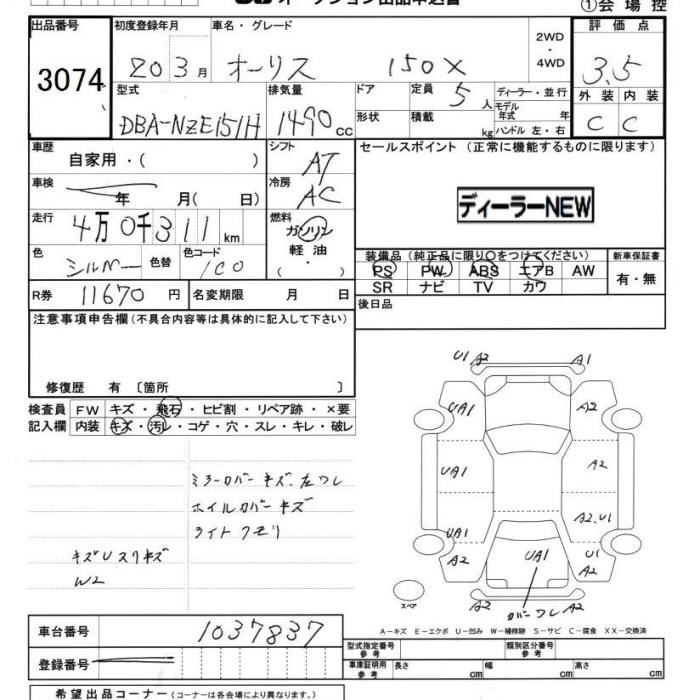 オークション出品申込書
①会場控
出品番号 3074
初度登録年月 20 3月
車名・グレード オーリス 150X
2WD・4WD
評価点 3.5
外装 C 内装 C
型式 DBA-NZE151H
排気量 1490cc
ドア
形状
定員 5人
積載 kg
ディーラー・並行
モデル年式 年
ハンドル 左・右
車歴 自家用・( )
シフト AT
セールスポイント (正常に機能するものに限ります)
ディーラーNEW
車検 年 月( 日)
冷房 AC
走行 4万0千311km
燃料 ガソリン・軽油 ( ・ )
色 シルバー 色替 色コード 1C0
装備品 (純正品に限り○をつけてください)
PS PW ABS エアB AW
SR ナビ TV カワ
新車保証書 有・無
R券 11670円 名変期限 月 日
後日品
注意事項申告欄 (不具合内容等は具体的に記入して下さい)
修復歴 有 〔箇所 〕
検査員記入欄
FW キズ・飛石・ヒビ割・リペア跡・×要
内装 キズ・汚レ・コゲ・穴・スレ・キレ・破レ
ミラーカバーキズ、左ワレ
ホイルカバーキズ
ライトクモリ
キズUスリキズ
W2
U1 A2 A1
UA1 A2
UA1 A2
A2、U1
UA1 UA1 U1
A2 A2
スペア A2 カバーワレ A2
A-キズ E-エクボ U-凹み W-補修跡 S-サビ C-腐食 XX-交換済
車台番号 1037837
登録番号
型式指定番号 参考
類別区分番号 参考
車庫証明用 参考 長さ cm 幅 cm 高さ cm
希望出品コーナー (コーナーは各会場により異なります。)